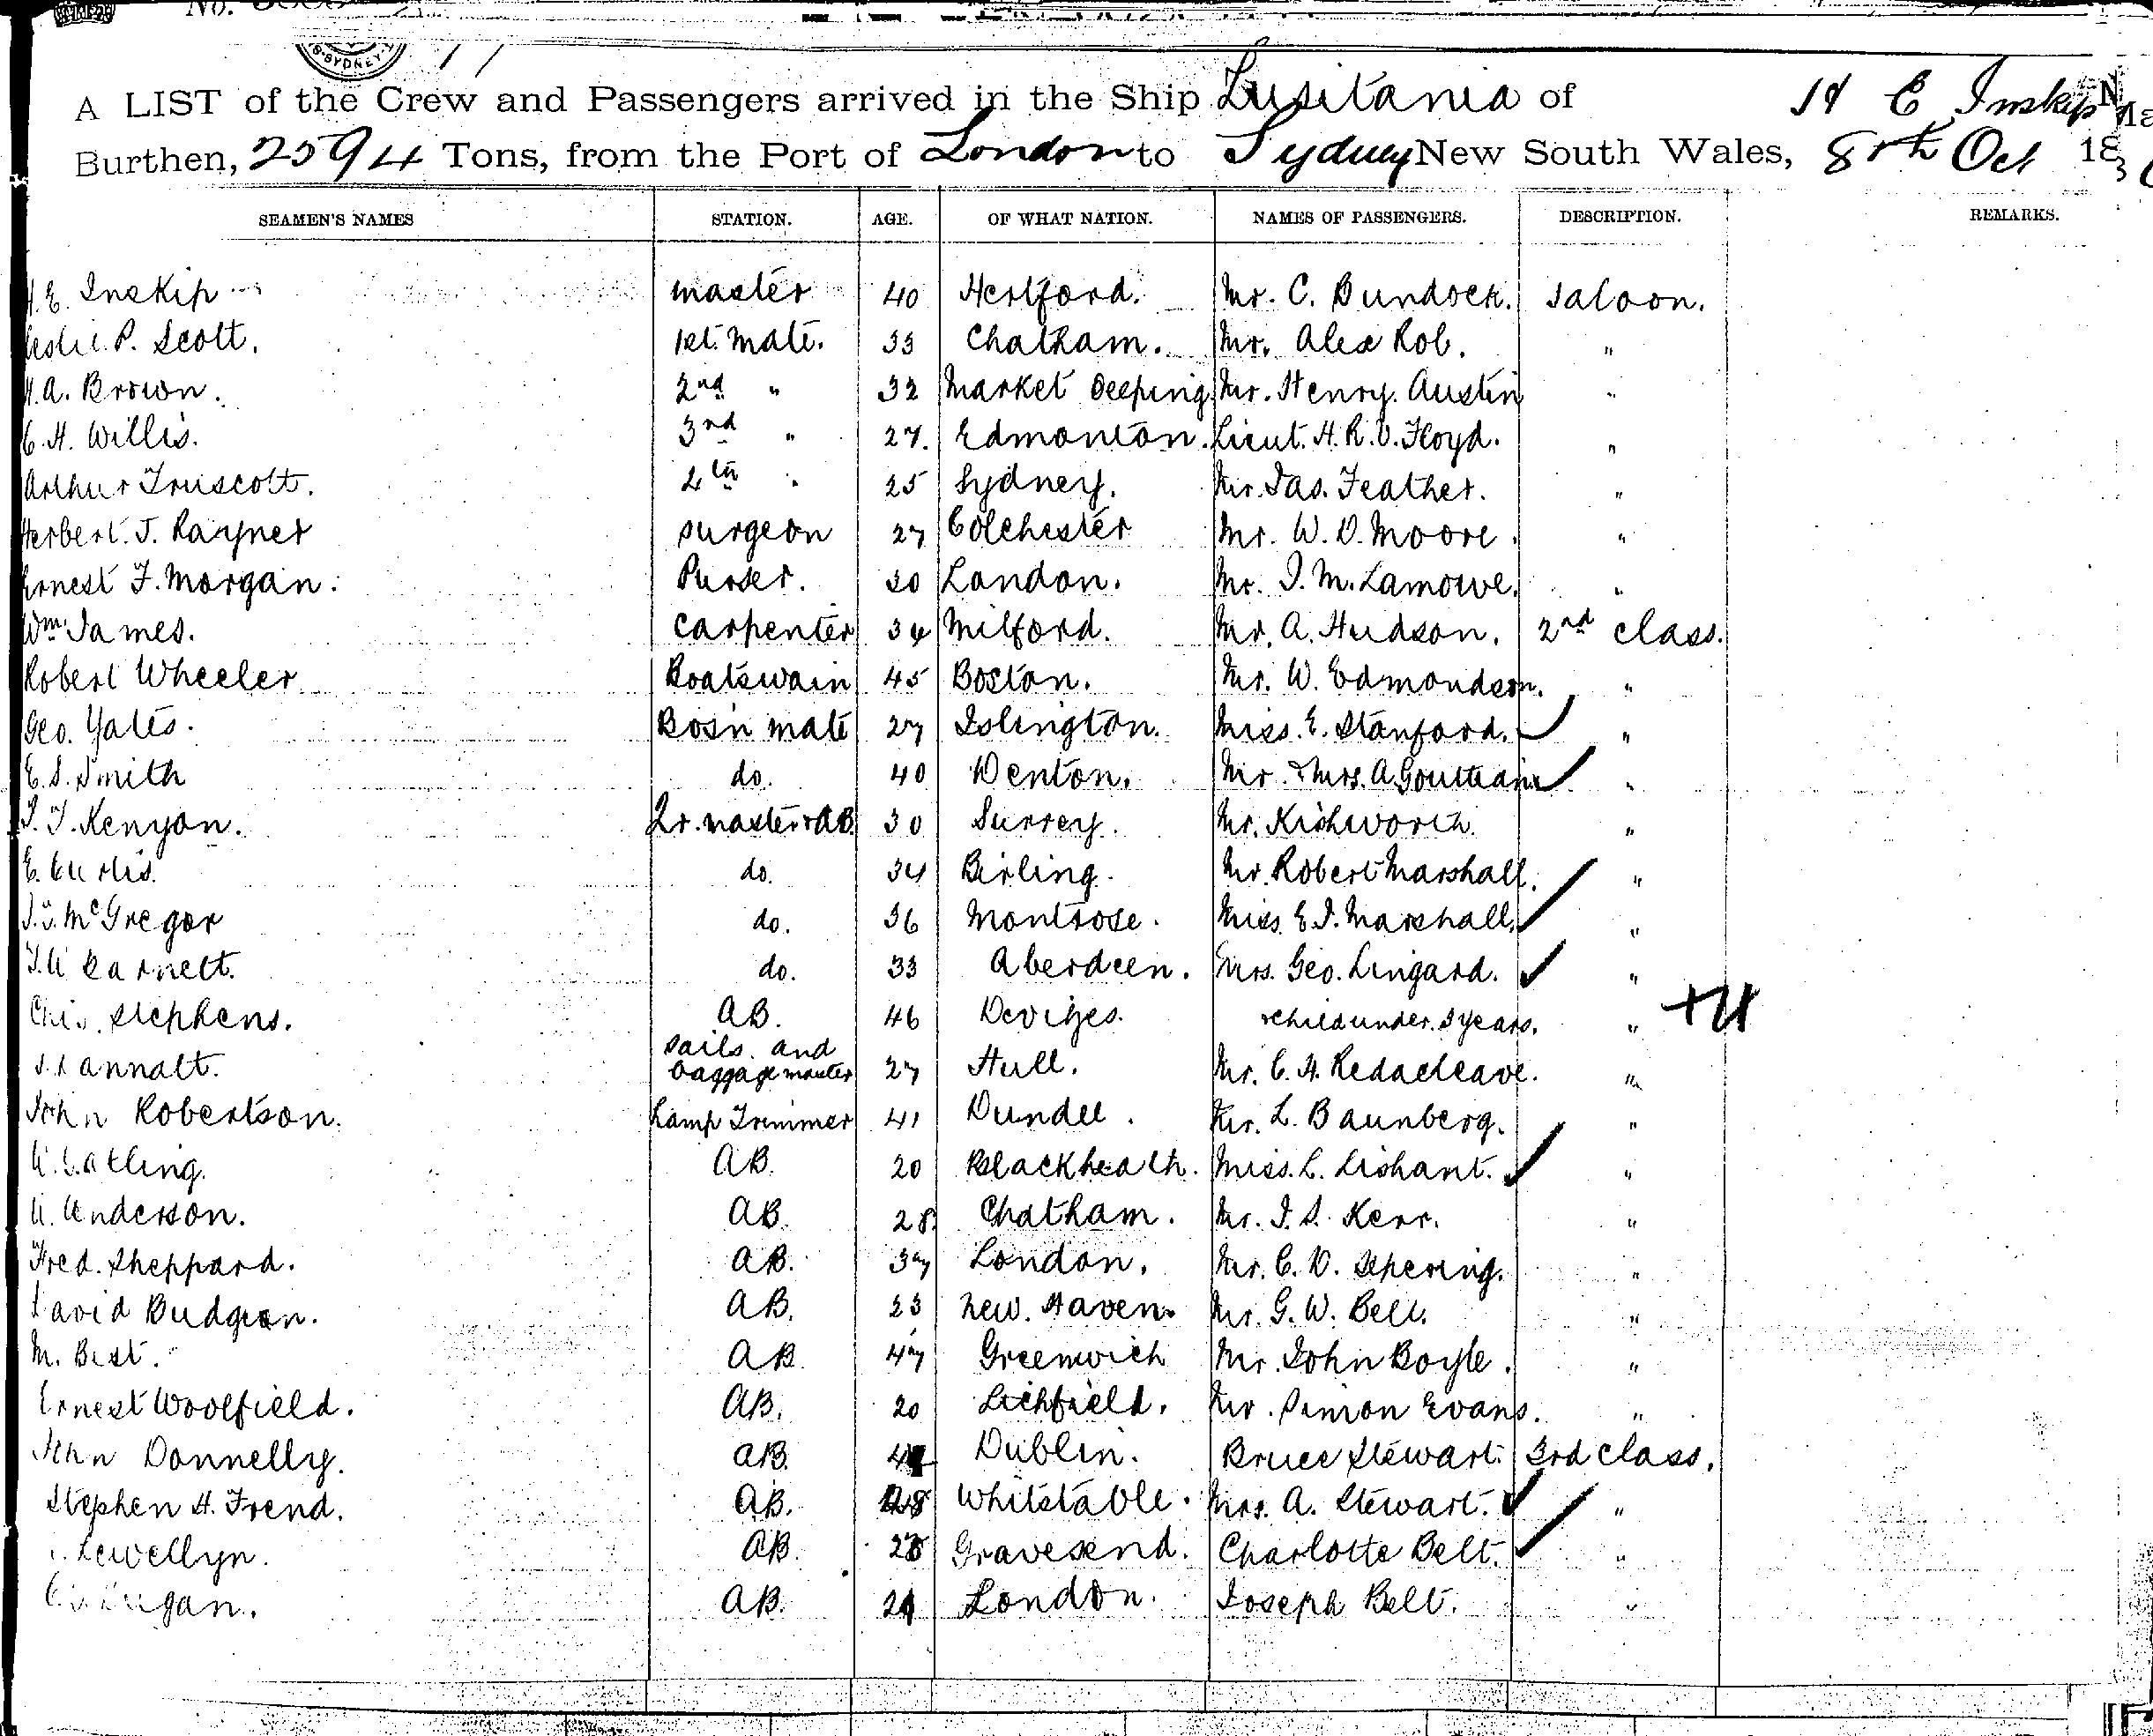 No.
SYDNEY
A LIST of the Crew and Passengers arrived in the Ship Lusitania of H E Inskip
Burthen, 2594 Tons, from the Port of London to Sydney New South Wales, 8th Oct 18
SEAMEN'S NAMES STATION. AGE. OF WHAT NATION. NAMES OF PASSENGERS. DESCRIPTION. REMARKS.
H.E. Inskip master 40 Hertford. Mr. C. Bundock. Saloon.
Leslie P. Scott. 1st. Mate. 33 Chatham. Mr. Alex Rob. "
H.A. Brown. 2nd " 32 Market Deeping Mr. Henry. Austin "
C.H. Willis. 3rd " 27. Edmonton. Lieut. H.R.V. Floyd. "
Arthur Truscott. 4th " 25 Sydney. Mr. Jas. Feather. "
Herbert. J. Rayner surgeon 27 Colchester Mr. W.D. Moore. "
Ernest F. Morgan. Purser. 30 London. Mr. J.M. "
Wm. James. Carpenter 34 Milford. Mr. A. Hudson. 2nd class.
Robert Wheeler Boatswain 45 Boston. Mr. W. Edmondson. "
Geo. Yates. Bosn mate 27 Islington. Miss. E. Stanford. "
E.S. Smith do. 40 Denton. Mr. & Mrs. A. "
J.J. Kenyon. Qr. master & AB 30 Surrey. Mr. Kishworth. "
E. Curtis. do. 34 Birling. Mr. Robert Marshall. "
J.G. McGregor do. 36 Montrose. Miss. E.J. Marshall. "
Barnett. do. 33 Aberdeen. Mrs. Geo. Lingard. "
Stephens. AB. 46 Devizes. & child under 3 years. "
Sails. and baggage master 27 Hull. Mr. C.H. Redacleave. "
John Robertson. Lamp Trimmer 41 Dundee. Mr. L. Baunberg. "
Catling. AB. 20 Blackheath. Miss. L. Lishant. "
Anderson. AB. 28. Chatham. Mr. J.S. Kerr. "
Fred. Sheppard. AB. 37 London. Mr. C.D. "
David Budgeon. AB. 23 New. Haven. Mr. G.W. Bell. "
M. Best. AB 47 Greenwich Mr. John Boyle. "
Ernest Woolfield. AB. 20 Lichfield. Mr. Simon Evans. "
John Donnelly. AB. Dublin. Bruce Stewart. 3rd class.
Stephen H. Frend. AB. 28 Whitstable. Mrs. A. Stewart. "
Lewellyn. AB. 28 Gravesend. Charlotte Belt. "
AB. London. Joseph Belt. "